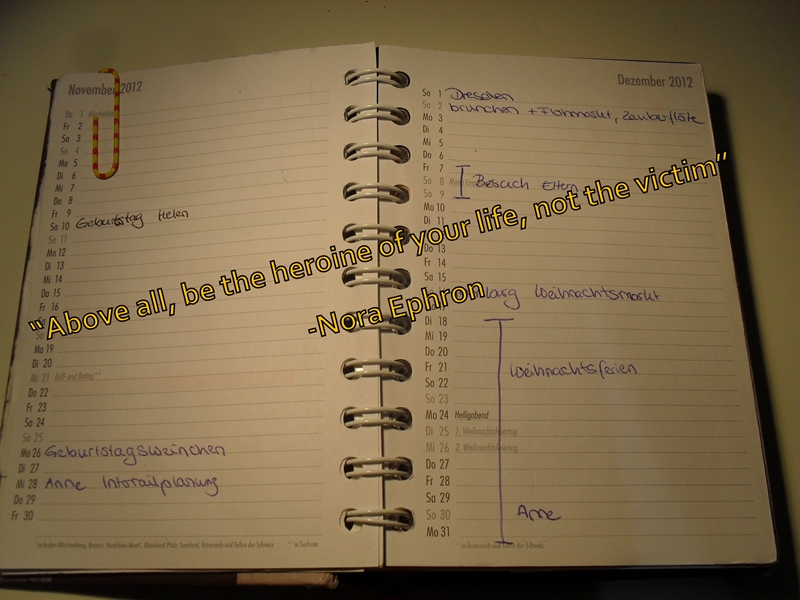 November 2012
Do 1 Allerheiligen*
Fr 2
Sa 3
So 4
Mo 5
Di 6
Mi 7
Do 8
Fr 9
Sa 10 Geburtstag Helen
So 11
Mo 12
Di 13
Mi 14
Do 15
Fr 16
Mo 19
Di 20
Mi 21 Buß- und Bettag**
Do 22
Fr 23
Sa 24
So 25
Mo 26 Geburtstagsweinchen
Di 27
Mi 28 Anne Interrailplanung
Do 29
Fr 30
* in Baden-Württemberg, Bayern, Nordrhein-Westf., Rheinland-Pfalz, Saarland, Österreich und Teilen der Schweiz ** in Sachsen
Dezember 2012
Sa 1 Dresden
So 2 brunchen + Flohmarkt, Zauberflöte
Mo 3
Di 4
Mi 5
Do 6
Fr 7
Sa 8 Besuch Eltern
So 9
Mo 10
Di 11
Do 13
Fr 14
Sa 15
Weihnachtsmarkt
Di 18
Mi 19
Do 20
Fr 21 Weihnachtsferien
Sa 22
So 23
Mo 24 Heiligabend
Di 25 1. Weihnachtsfeiertag
Mi 26 2. Weihnachtsfeiertag
Do 27
Fr 28
Sa 29
So 30 Anne
Mo 31
* in Österreich und Teilen der Schweiz
“Above all, be the heroine of your life, not the victim”
-Nora Ephron